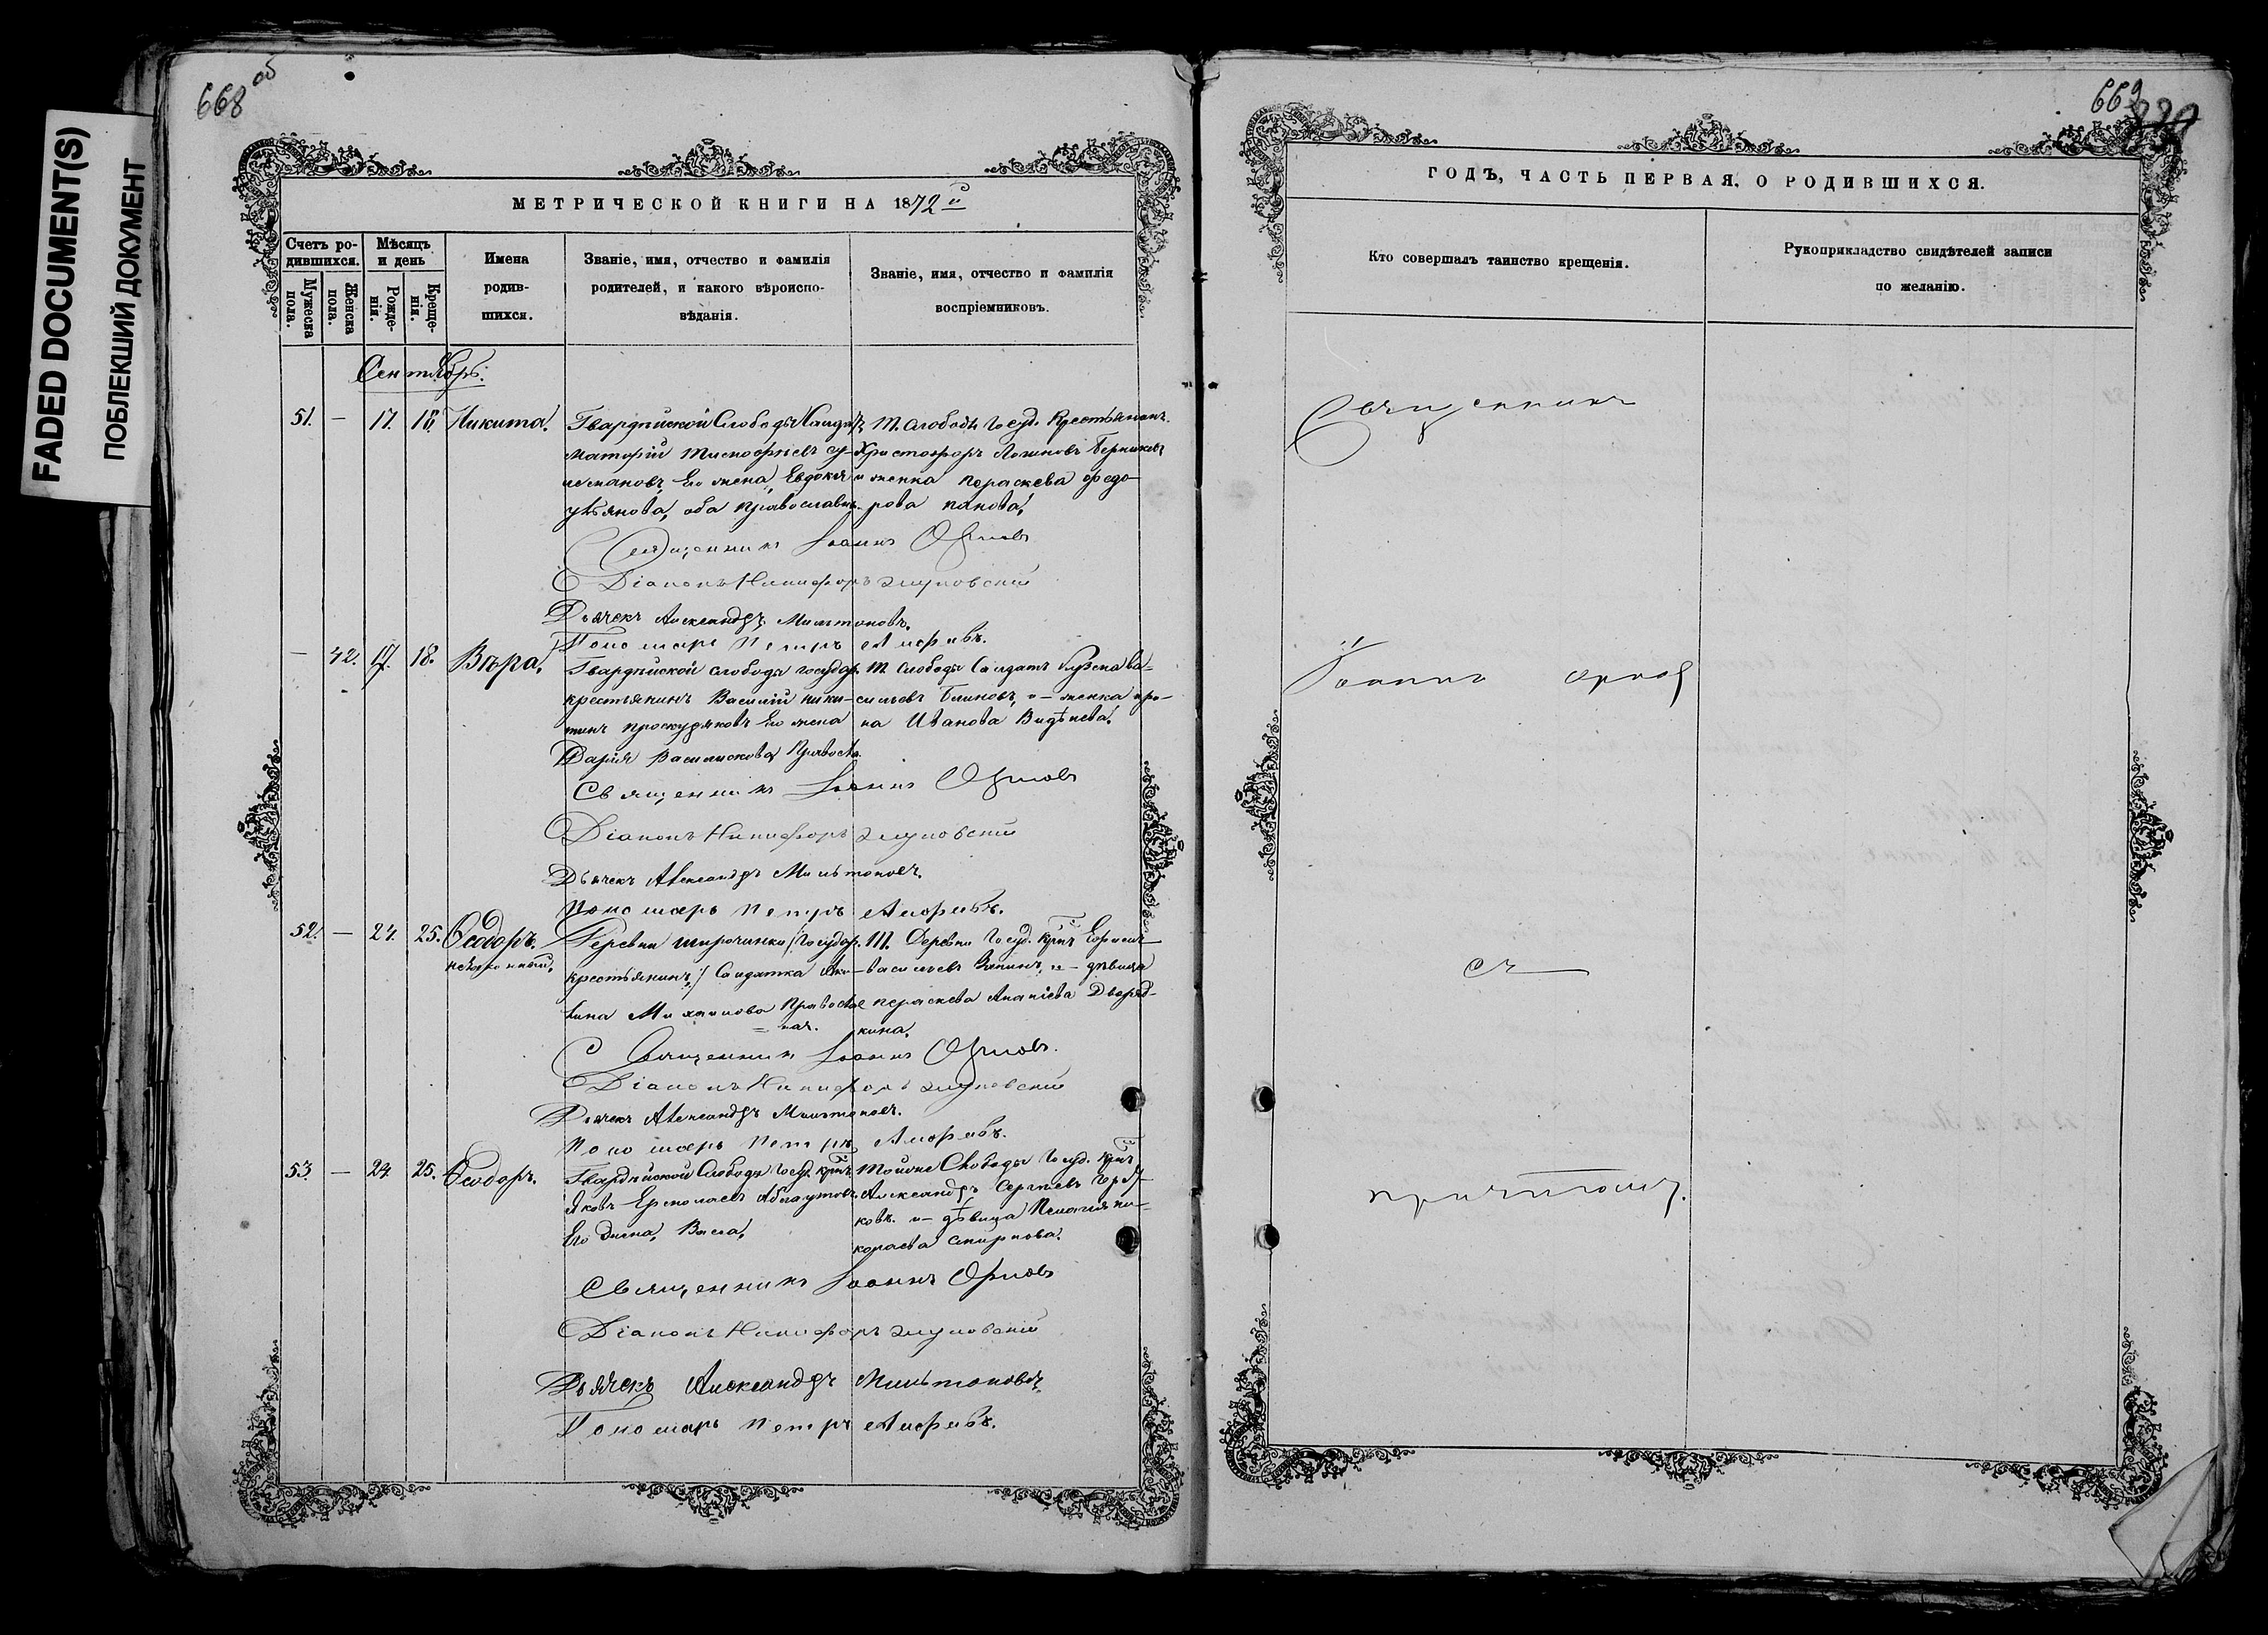 FADED DOCUMENT(S)
ПОБЛЕКШИЙ ДОКУМЕНТ
668 об
МЕТРИЧЕСКОЙ КНИГИ НА 1872й
Счетъ ро-
дившихся.
Мужеска
пола.
Женска
пола.
Мѣсяцъ
и день
Рожде-
нія.
Креще-
нія.
Имена
родив-
шихся.
Званіе, имя, отчество и фамилія
родителей, и какого вѣроиспо-
вѣданія.
Званіе, имя, отчество и фамилія
воспріемниковъ.
Сентябрь.
51. — 17. 18. Никита.
Гвардѣйской Слободы
его жена, Евдокія
оба православн.
Т. Слободы Госуд. Крестьянинъ
Христофоръ Логиновъ
и женка Параскева Федо-
рова Панова.
Священникъ Іоаннъ Орловъ
Діаконъ Никифоръ
Дьячекъ Александръ Мильтоновъ.
Пономарь Петръ
— 42. 17. 18. Вѣра.
Гвардѣйской слободы государ.
крестьянинъ Василій Ники-
тинъ Проскуряковъ его жена
Дарія Правосл.
Т. Слободы Солдатъ Ва-
сильевъ Блиновъ, и – женка Ири-
на Иванова Видѣнева.
Священникъ Іоаннъ Орловъ
Діаконъ Никифоръ
Дьячекъ Александръ Мильтоновъ.
Пономарь Петръ
52. — 24. 25. Ѳеодоръ.
незаконный.
Деревни Широчинки /Государ.
крестьянинъ/ Солдатка Аку-
лина Михаилова Православ
= ная.
Т. Деревни Госуд. Крнъ
Васильевъ и – дѣвица
Параскева Ананіева Дворяд-
кина.
Священникъ Іоаннъ Орловъ.
Діаконъ Никифоръ
Дьячекъ Александръ Мильтоновъ.
Пономарь Петръ
53. — 24. 25. Ѳеодоръ.
Гвардѣйской Слободы Госуд. крнъ
Яковъ Ермолаевъ
Его жена, Васса,
Тойже Слободы Госуд. Крнъ
Александръ Сергѣевъ
ковъ. и – дѣвица Пелагія Ни-
колаева Смирнова.
Священникъ Іоаннъ Орловъ
Діаконъ Никифоръ
Дьячекъ Александръ Мильтоновъ.
Пономарь Петръ
669
ГОДЪ, ЧАСТЬ ПЕРВАЯ, О РОДИВШИХСЯ.
Кто совершалъ таинство крещенія.
Рукоприкладство свидѣтелей записи
по желанію.
Священникъ
Іоаннъ Орловъ
съ
причтомъ.